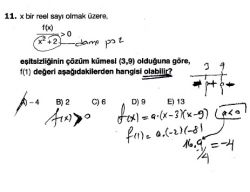 11. x bir reel sayı olmak üzere,
f(x)
x²+2 > 0 → daima poz
eşitsizliğinin çözüm kümesi (3,9) olduğuna göre,
f(1) değeri aşağıdakilerden hangisi olabilir?
3 9
- + -
A) – 4 B) 2 C) 6 D) 9 E) 13
f(x) > 0 f(x) = a.(x-3)(x-9) a<0
f(1) = a.(-2)(-8)
16.a = -4